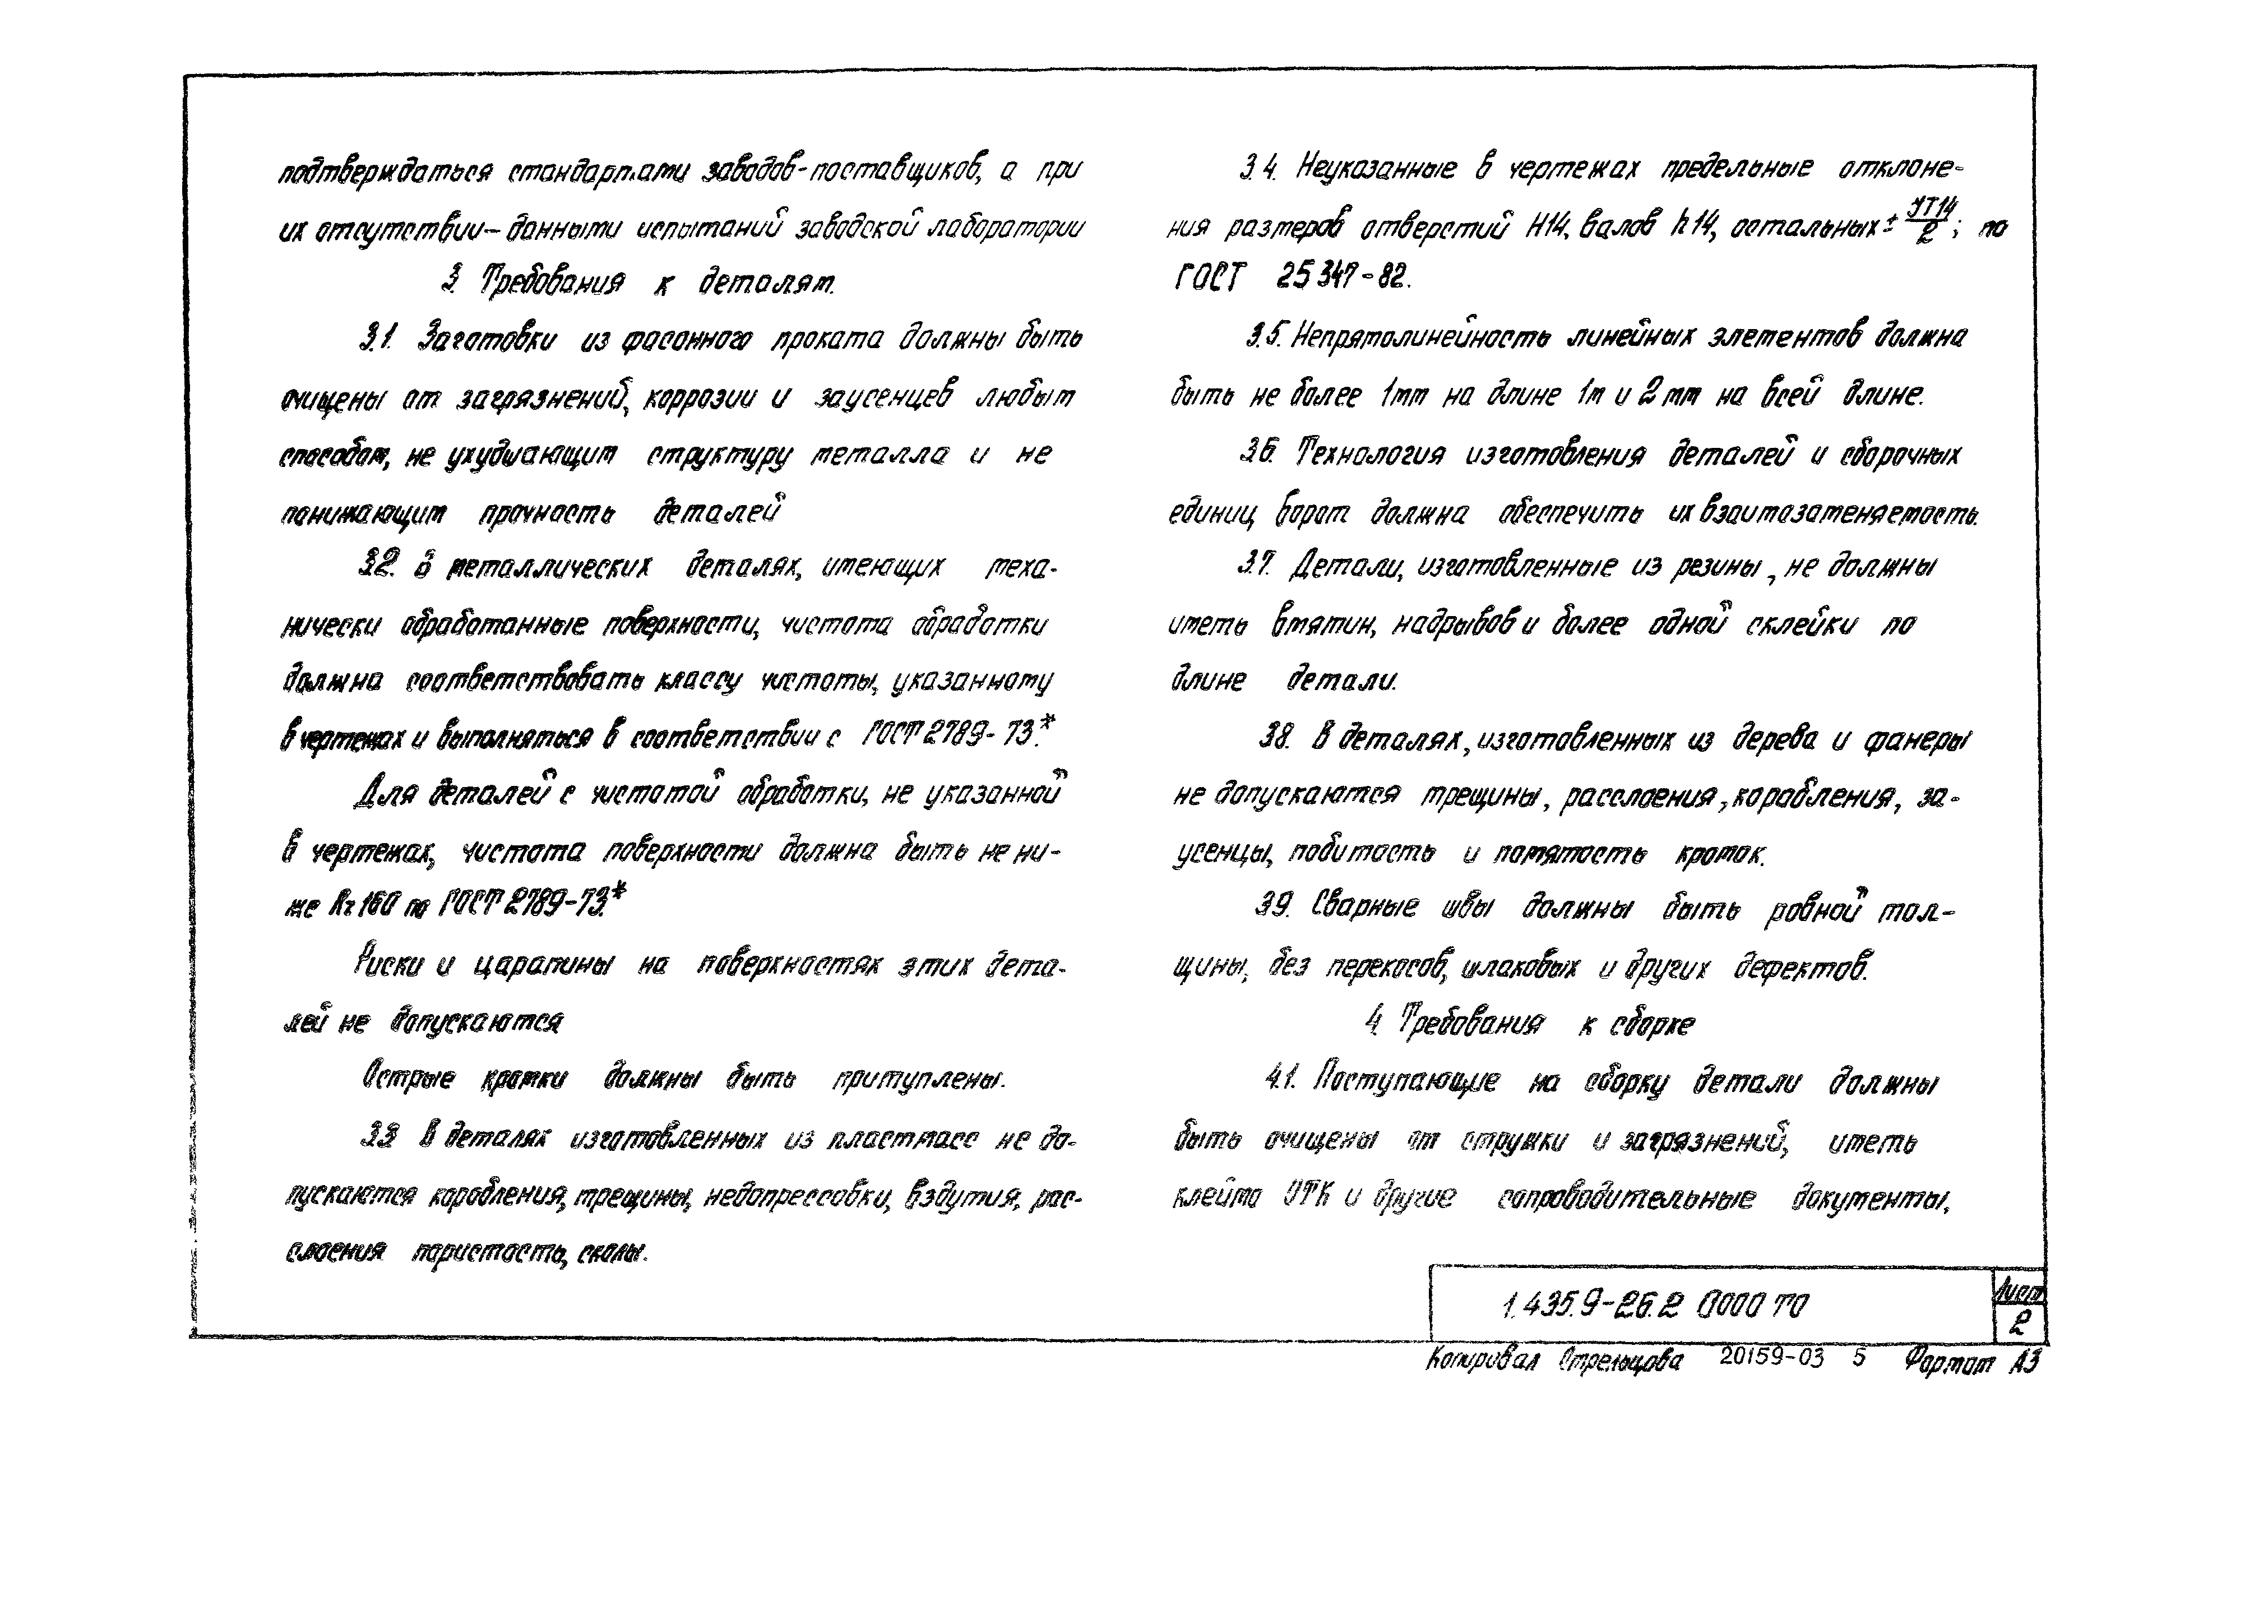 подтверждаться стандартами заводов-поставщиков, а при
их отсутствии — данными испытаний заводской лаборатории
3. Требования к деталям.
3.1. Заготовки из фасонного проката должны быть
очищены от загрязнений, коррозии и заусенцев любым
способом, не ухудшающим структуру металла и не
понижающим прочность деталей
3.2. В металлических деталях, имеющих меха-
нически обработанные поверхности, чистота обработки
должна соответствовать классу чистоты, указанному
в чертежах и выполняться в соответствии с ГОСТ 2789-73.*
Для деталей с чистотой обработки, не указанной
в чертежах, чистота поверхности должна быть не ни-
же Rz 160 по ГОСТ 2789-73.*
Риски и царапины на поверхностях этих дета-
лей не допускаются
Острые кромки должны быть притуплены.
3.3 В деталях изготовленных из пластмасс не до-
пускаются коробления, трещины, недопрессовки, вздутия, рас-
слоения пористость, сколы.
3.4. Неуказанные в чертежах предельные отклоне-
ния размеров отверстий H14, валов h14, остальных ± УТ14/2; по
ГОСТ 25347-82.
3.5. Непрямолинейность линейных элементов должна
быть не более 1мм на длине 1м и 2мм на всей длине.
3.6. Технология изготовления деталей и сборочных
единиц ворот должна обеспечить их взаимозаменяемость.
3.7. Детали, изготовленные из резины, не должны
иметь вмятин, надрывов и более одной склейки по
длине детали.
3.8. В деталях, изготовленных из дерева и фанеры
не допускаются трещины, расслоения, коробления, за-
усенцы, побитость и помятость кромок.
3.9. Сварные швы должны быть ровной тол-
щины, без перекосов, шлаковых и других дефектов.
4. Требования к сборке
4.1. Поступающие на сборку детали должны
быть очищены от стружки и загрязнений, иметь
клеймо ОТК и другие сопроводительные документы.
1.435.9-26.2 0000 ТО
Лист
2
Копировал Стрельцова 20159-03 5 Формат А3